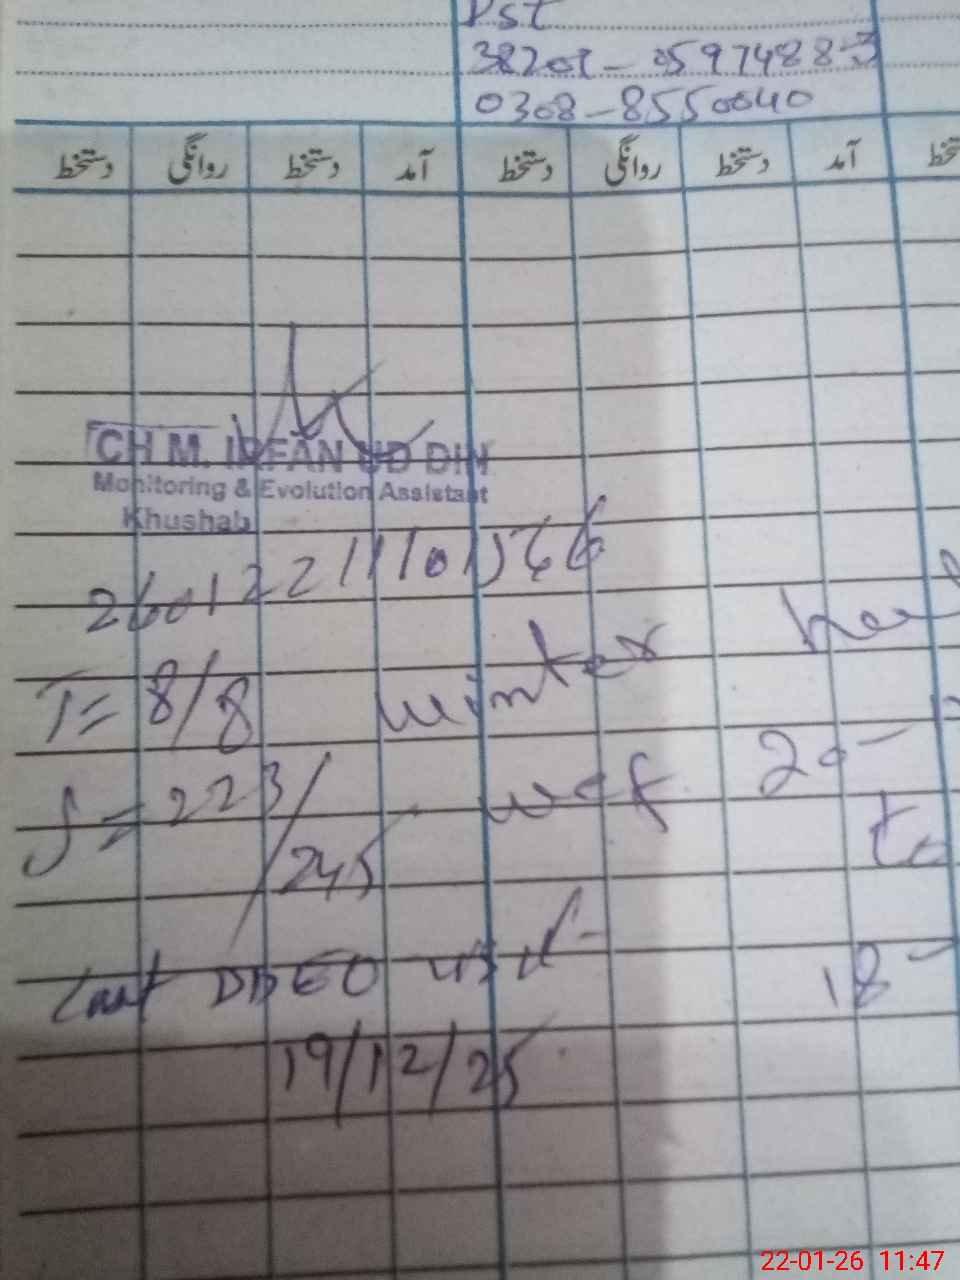 Pst
38201-0597488-3
0308-8550040
دستخط روانگی دستخط آمد دستخط روانگی دستخط آمد دستخط
CH M. IRFAN UD DIN
Monitoring & Evolution Assistant
Khushab
260122111101566
T= 8/8 winter
S= 223/245 wef 20-
to
Last DDEO visit- 18-
19/12/25
22-01-26 11:47